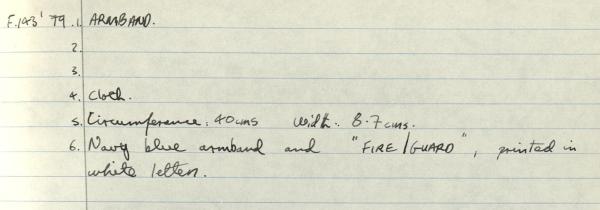 F.143'79. 1. ARMBAND.
2.
3.
4. Cloth.
5. Circumference: 40cms Width: 8.7cms.
6. Navy blue armband and "FIRE/GUARD", printed in
white letters.